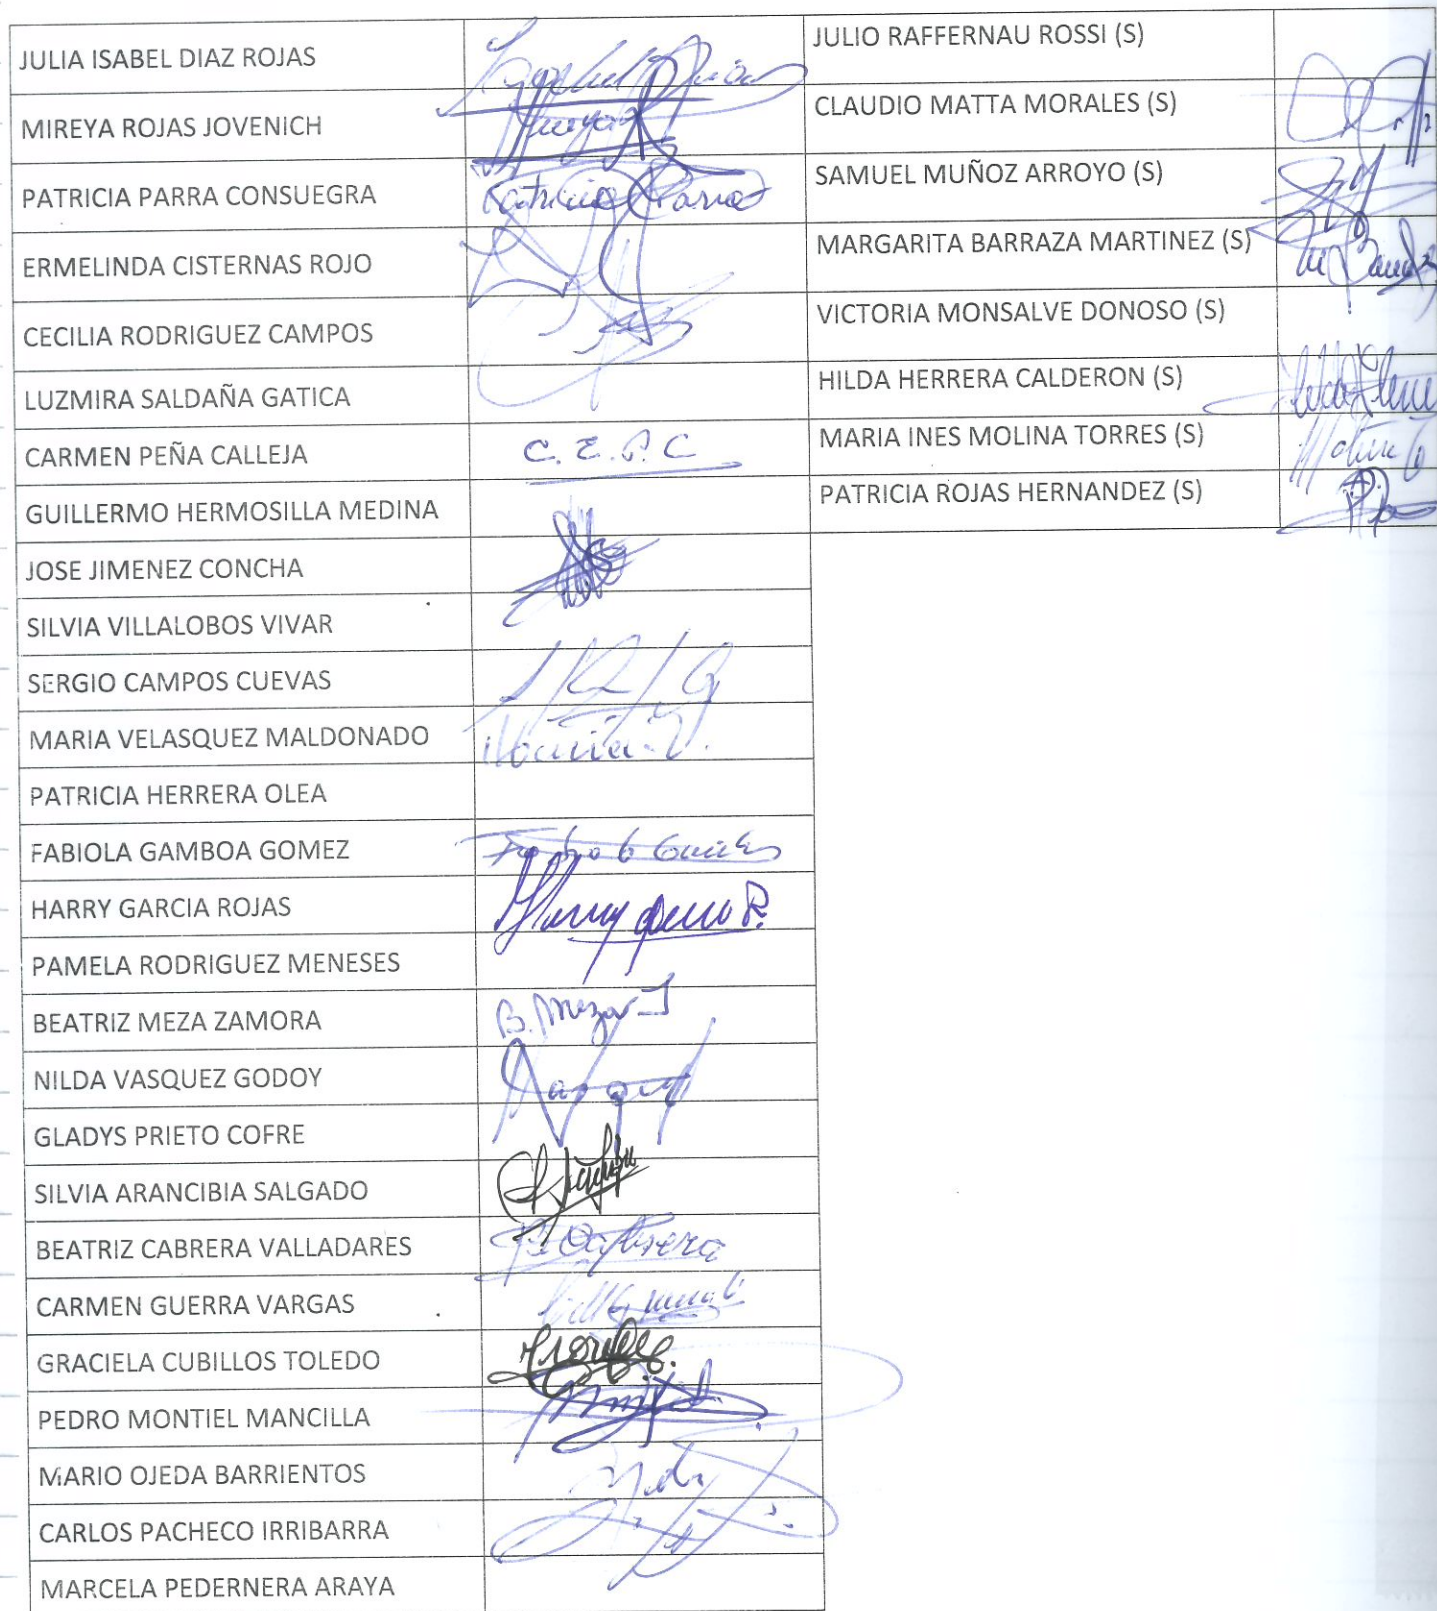 JULIA ISABEL DIAZ ROJAS
MIREYA ROJAS JOVENICH
PATRICIA PARRA CONSUEGRA
Patricia Parra
ERMELINDA CISTERNAS ROJO
CECILIA RODRIGUEZ CAMPOS
LUZMIRA SALDAÑA GATICA
CARMEN PEÑA CALLEJA
C. E. P. C
GUILLERMO HERMOSILLA MEDINA
JOSE JIMENEZ CONCHA
SILVIA VILLALOBOS VIVAR
SERGIO CAMPOS CUEVAS
MARIA VELASQUEZ MALDONADO
Maria. V.
PATRICIA HERRERA OLEA
FABIOLA GAMBOA GOMEZ
HARRY GARCIA ROJAS
Harry R.
PAMELA RODRIGUEZ MENESES
BEATRIZ MEZA ZAMORA
B. Meza
NILDA VASQUEZ GODOY
GLADYS PRIETO COFRE
SILVIA ARANCIBIA SALGADO
BEATRIZ CABRERA VALLADARES
B. Cabrera
CARMEN GUERRA VARGAS
GRACIELA CUBILLOS TOLEDO
PEDRO MONTIEL MANCILLA
MARIO OJEDA BARRIENTOS
CARLOS PACHECO IRRIBARRA
MARCELA PEDERNERA ARAYA
JULIO RAFFERNAU ROSSI (S)
CLAUDIO MATTA MORALES (S)
SAMUEL MUÑOZ ARROYO (S)
MARGARITA BARRAZA MARTINEZ (S)
VICTORIA MONSALVE DONOSO (S)
HILDA HERRERA CALDERON (S)
MARIA INES MOLINA TORRES (S)
PATRICIA ROJAS HERNANDEZ (S)